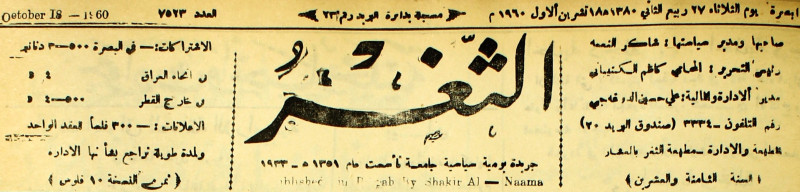 البصرة يوم الثلاثاء ٢٧ ربيع الثاني ١٣٨٠ ١٨ تشرين الأول ١٩٦٠ م
مسجلة بدائرة البريد رقم ٢٣
العدد ٧٥٢٣
October 18 - 1960
صاحبها ومدير سياستها: شاكر النعمه
رئيس التحرير: المحامي كاظم
مدير الادارة والمالية: علي حسين
رقم التلفون - ٣٣٣٤ (صندوق البريد ٢٠)
المطبعة والادارة - مطبعة الثغر بالعشار
(السنة الثامنة والعشرين)
الثغر
جريدة يومية سياسية جامعة تأسست عام ١٣٥١ ه ١٩٣٣
Published in by Shakir Al - Naama
الاشتراكات: - في البصرة ٣٠٠٠ دنانير
في انحاء العراق ٤ د
في خارج القطر ٥٠٠-٤ د
الاعلانات: - ٣٠٠ فلساً العقد الواحد
ولمدة طويلة تراجع بشأنها الاداره
(ثمن النسخة ١٠ فلوس)